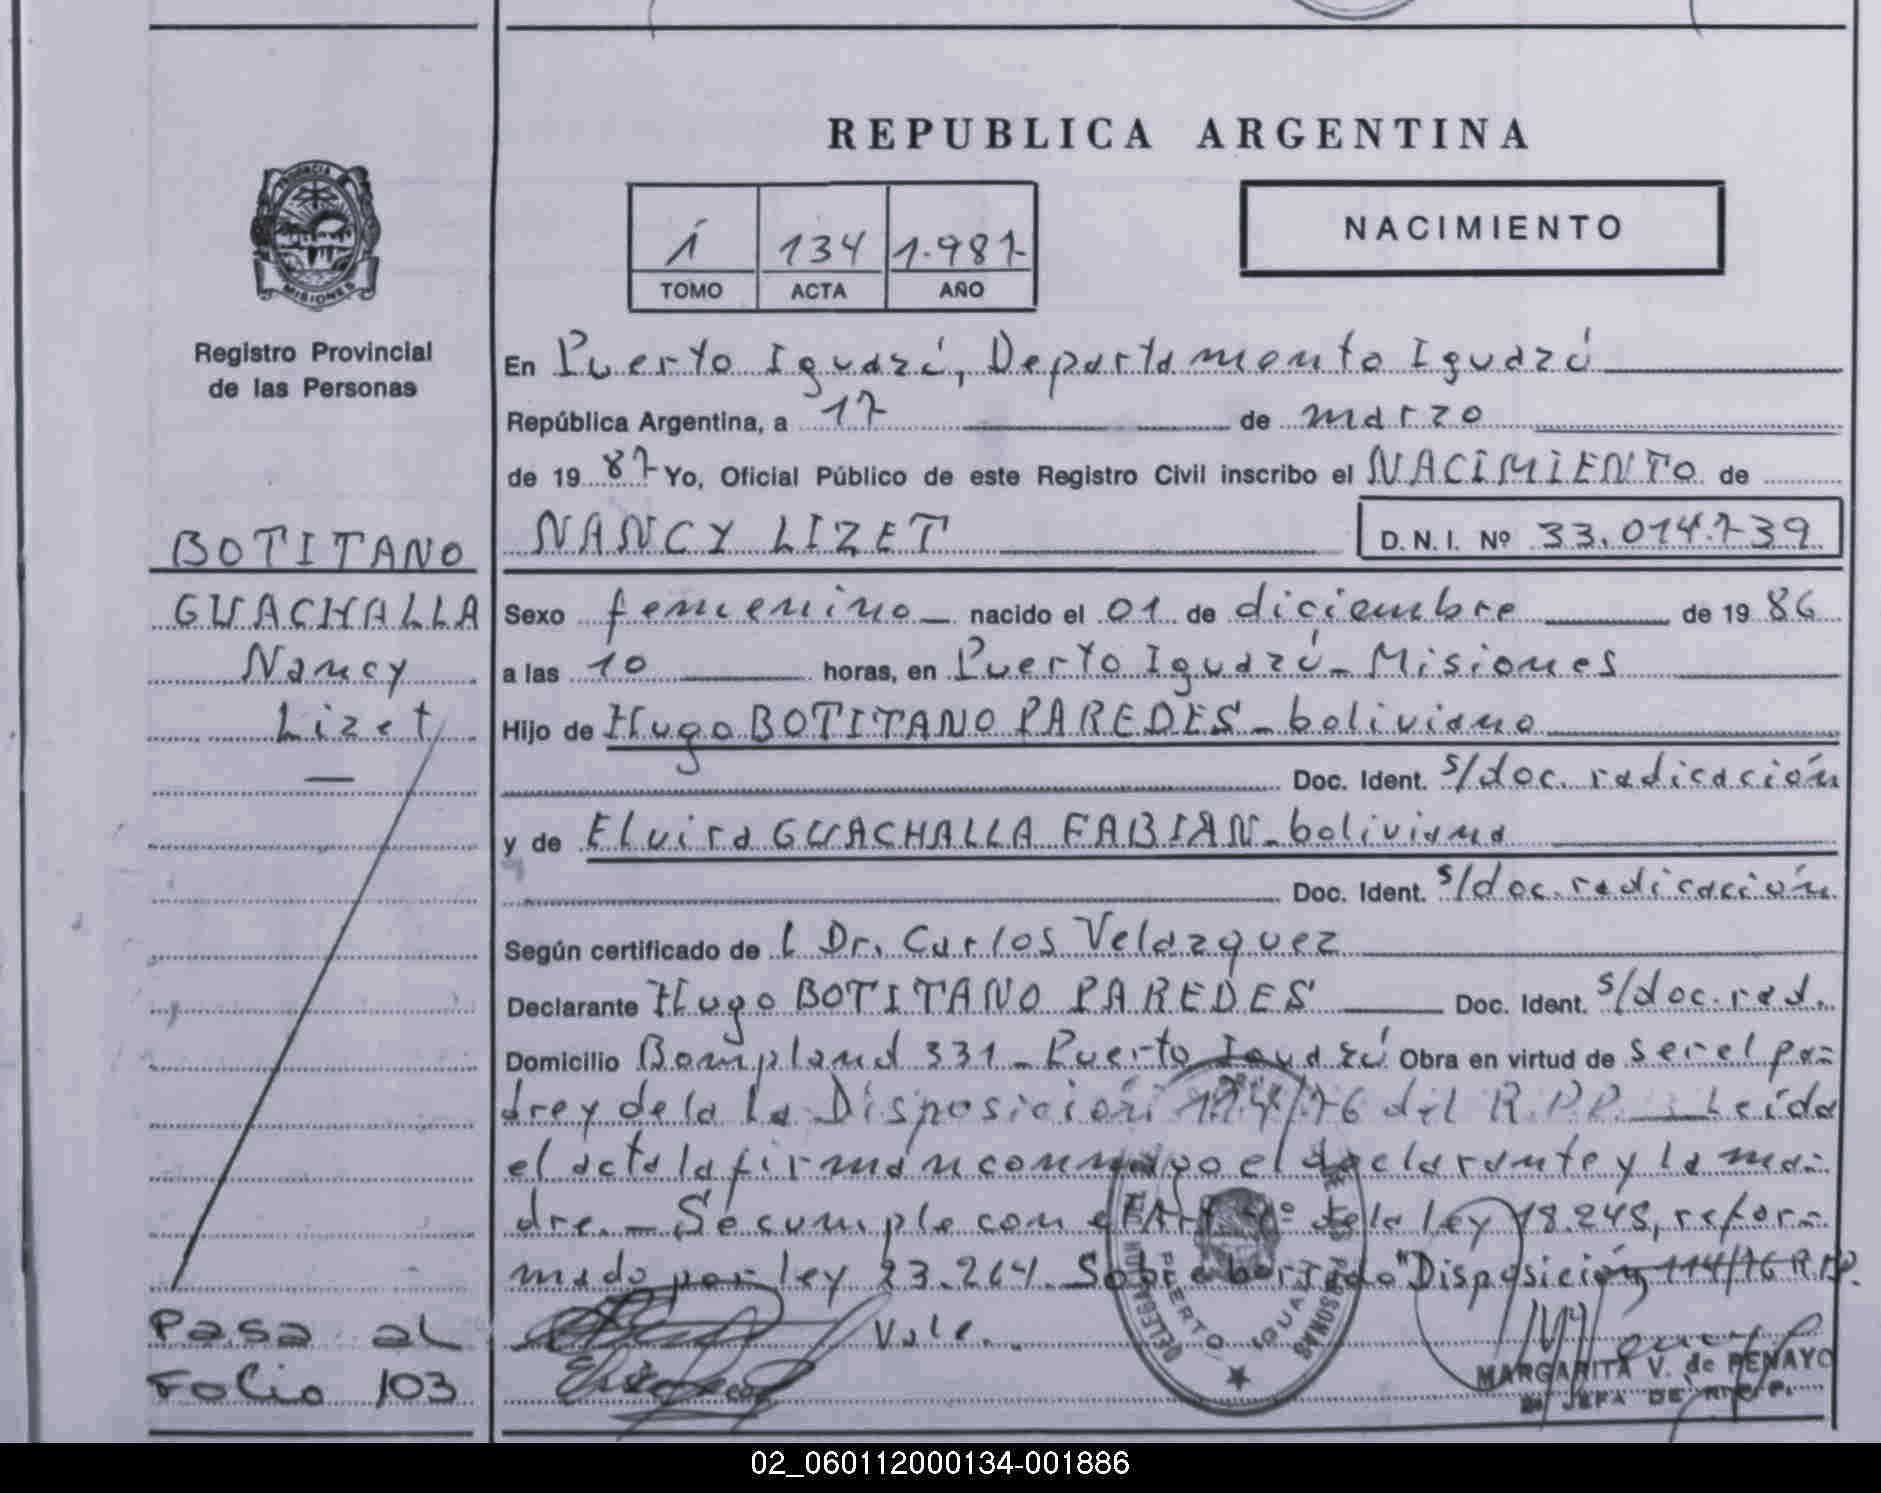 REPUBLICA ARGENTINA
PROVINCIA DE
MISIONES
Registro Provincial
de las Personas
1 134 1.987
TOMO ACTA AÑO
NACIMIENTO
En Puerto Iguazú, Departamento Iguazú
República Argentina, a 17 de marzo
de 1987 Yo, Oficial Público de este Registro Civil inscribo el NACIMIENTO de
NANCY LIZET D.N.I. Nº 33.014.739
BOTITANO
GUACHALLA
Nancy
Lizet
Sexo femenino nacido el 01 de diciembre de 1986
a las 10 horas, en Puerto Iguazú - Misiones
Hijo de Hugo BOTITANO PAREDES - boliviano
Doc. Ident. s/doc. radicación
y de Elvira GUACHALLA FABIAN - boliviana
Doc. Ident. s/doc. radicación
Según certificado de l Dr. Carlos Velazquez
Declarante Hugo BOTITANO PAREDES Doc. Ident. s/doc. rad.
Domicilio Bompland 331 - Puerto Iguazú Obra en virtud de ser el pa=
dre y de la La Disposición /76 del R.P.P. Leída
el acta la firman conmigo el declarante y la ma=
dre. - Se cumple con el Art. de la ley 18.248, refor=
mado por ley 23.264. Sobre borrado "Disposición 114/76 R.P.P.
Vale.
Pasa al
Folio 103
DELEGACION
PUERTO IGUAZU
DE LAS PERSONAS
MARGARITA V. de PENAYO
JEFA DE
02_060112000134-001886